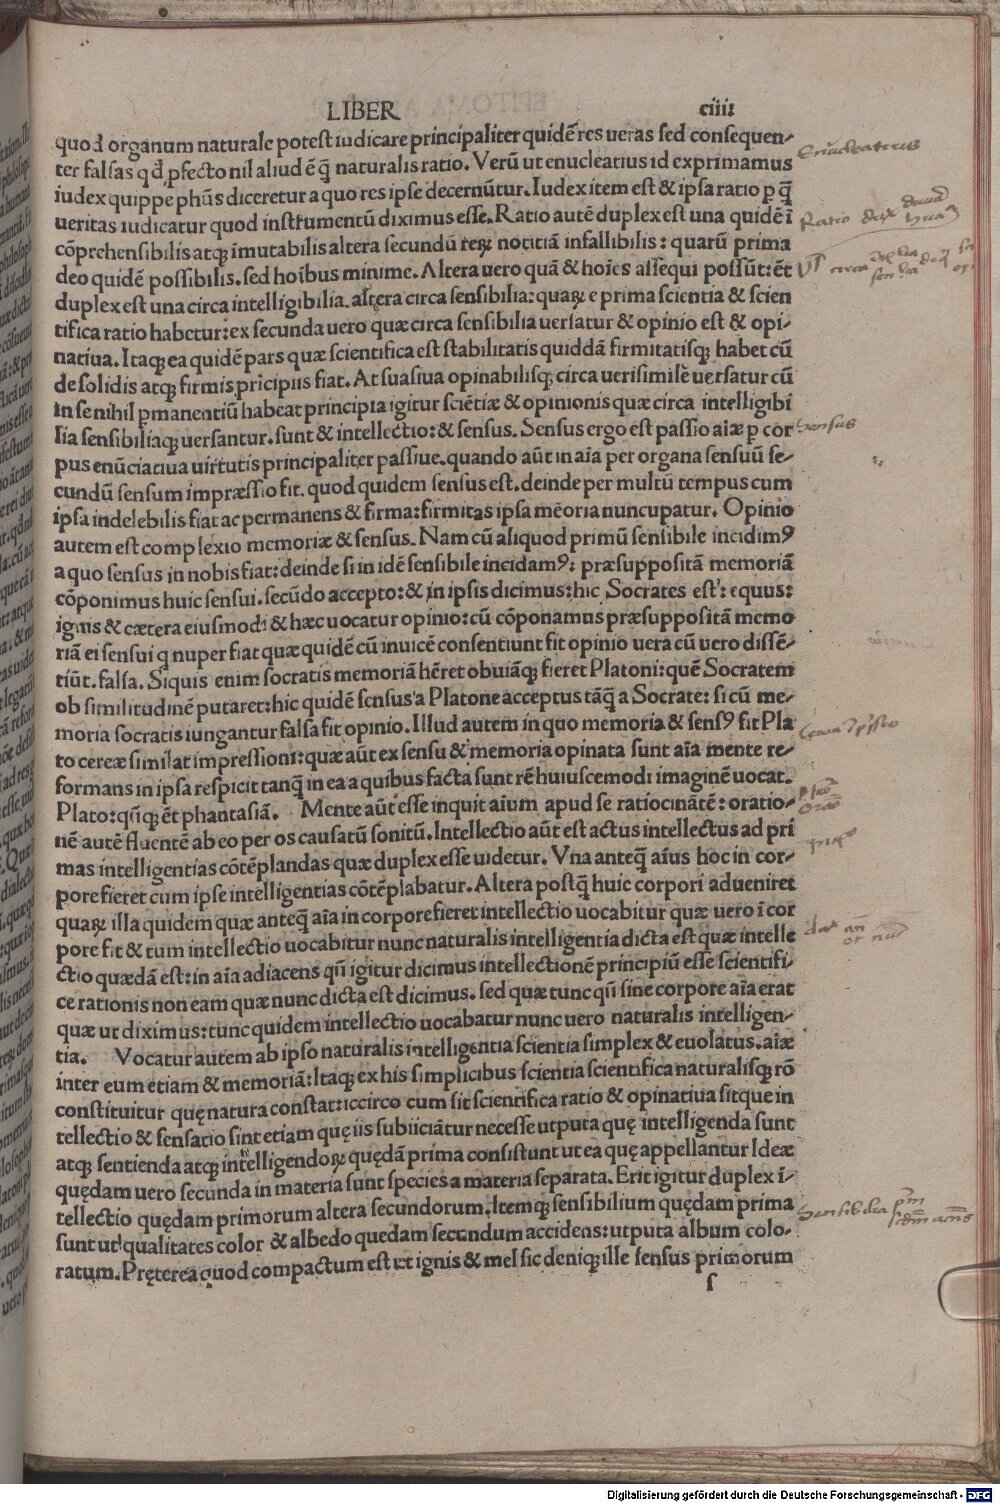 LIBER ciiii
quod organum naturale potest iudicare principaliter quidē res ueras sed consequen-
ter falsas qd pfecto nil aliud ē q̃ naturalis ratio. Verū ut enucleatius id exprimamus
iudex quippe phūs diceretur a quo res ipse decernūtur. Iudex item est & ipsa ratio p q̃
ueritas iudicatur quod instrumentū diximus esse. Ratio autē duplex est una quidē ī
cōprehensibilis atq; imutabilis altera secundū reꝝ notitiā infallibilis: quarū prima
deo quidē possibilis. sed hoībus minime. Altera uero quā & hoīes assequi possūt: ēt
duplex est una circa intelligibilia. altera circa sensibilia: quaꝝ e prima scientia & scien
tifica ratio habetur: ex secunda uero quæ circa sensibilia uersatur & opinio est & opi-
natiua. Itaq; ea quidē pars quæ scientifica est stabilitatis quiddā firmitatisq; habet cū
de solidis atq; firmis pricipiis fiat. At suasiua opinabilisq; circa uerisimilē uersatur cū
in se nihil pmanentiū habeat principia igitur sciētiæ & opinionis quæ circa intelligibi
lia sensibiliaq; uersantur. sunt & intellectio: & sensus. Sensus ergo est passio aiæ p cor
pus enūciatiua uirtutis principaliter passiue. quando aūt in aīa per organa sensuū se-
cundū sensum impræssio fit. quod quidem sensus est. deinde per multū tempus cum
ipsa indelebilis fiat ac permanens & firma: firmitas ipsa mēoria nuncupatur. Opinio
autem est complexio memoriæ & sensus. Nam cū aliquod primū sensibile incidimꝰ
a quo sensus in nobis fiat: deinde si in idē sensibile incidamꝰ: præsuppositā memoriā
cōponimus huic sensui. secūdo accepto: & in ipsis dicimus: hic Socrates est: equus:
ignis & cætera eiusmodi & hæc uocatur opinio: cū cōponamus præsuppositā memo
riā ei sensui q nuper fiat quæ quidē cū inuicē consentiunt fit opinio uera cū uero dissē-
tiūt. falsa. Siquis enim socratis memoriā hēret obuiāq; fieret Platoni: quē Socratem
ob similitudinē putaret: hic quidē sensus a Platone acceptus tāq̃ a Socrate: si cū me-
moria socratis iungantur falsa fit opinio. Illud autem in quo memoria & sensꝰ fit Pla
to cereæ similat impressioni: quæ aūt ex sensu & memoria opinata sunt aīa mente re-
formans in ipsa respicit tanq̃ in ea a quibus facta sunt rē huiuscemodi imaginē uocat.
Plato: qñq; ēt phantasiā. Mente aūt esse inquit aium apud se ratiocinātē: oratio-
nē autē fluentē ab eo per os causatū sonitū. Intellectio aūt est actus intellectus ad pri
mas intelligentias cōtēplandas quæ duplex esse uidetur. Vna anteq̃ aīus hoc in cor-
pore fieret cum ipse intelligentias cōtēplabatur. Altera postq̃ huic corpori adueniret
quaꝝ illa quidem quæ anteq̃ aīa in corpore fieret intellectio uocabitur quæ uero ī cor
pore fit & tum intellectio uocabitur nunc naturalis intelligentia dicta est quæ intelle
ctio quædā est: in aīa adiacens qñ igitur dicimus intellectionē principiū esse scientifi-
ce rationis non eam quæ nunc dicta est dicimus. sed quæ tunc qñ sine corpore aīa erat
quæ ut diximus: tunc quidem intellectio uocabatur nunc uero naturalis intelligen-
tia. Vocatur autem ab ipso naturalis intelligentia scientia simplex & euolatus. aiæ
inter eum etiam & memoriā: Itaq; ex his simplicibus scientia scientifica naturalisq; rō
constituitur quę natura constat: iccirco cum sit scientifica ratio & opinatiua sitque in
tellectio & sensatio sint etiam quę iis subiiciātur necesse utputa quę intelligenda sunt
atq; sentienda atq; intelligendoꝝ quędā prima consistunt ut ea quę appellantur Ideæ
quędam uero secunda in materia sunt species a materia separata. Erit igitur duplex ī-
tellectio quędam primorum altera secundorum. Itemq; sensibilium quędam prima
sunt ut qualitates color & albedo quedam secundum accidens: utputa album colo-
ratum. Pręterea quod compactum est ut ignis & mel sic deniq; ille sensus primorum
f
Enucleatius
Ratio dux
Sensus
Sensibilia
Digitalisierung gefördert durch die Deutsche Forschungsgemeinschaft - DFG